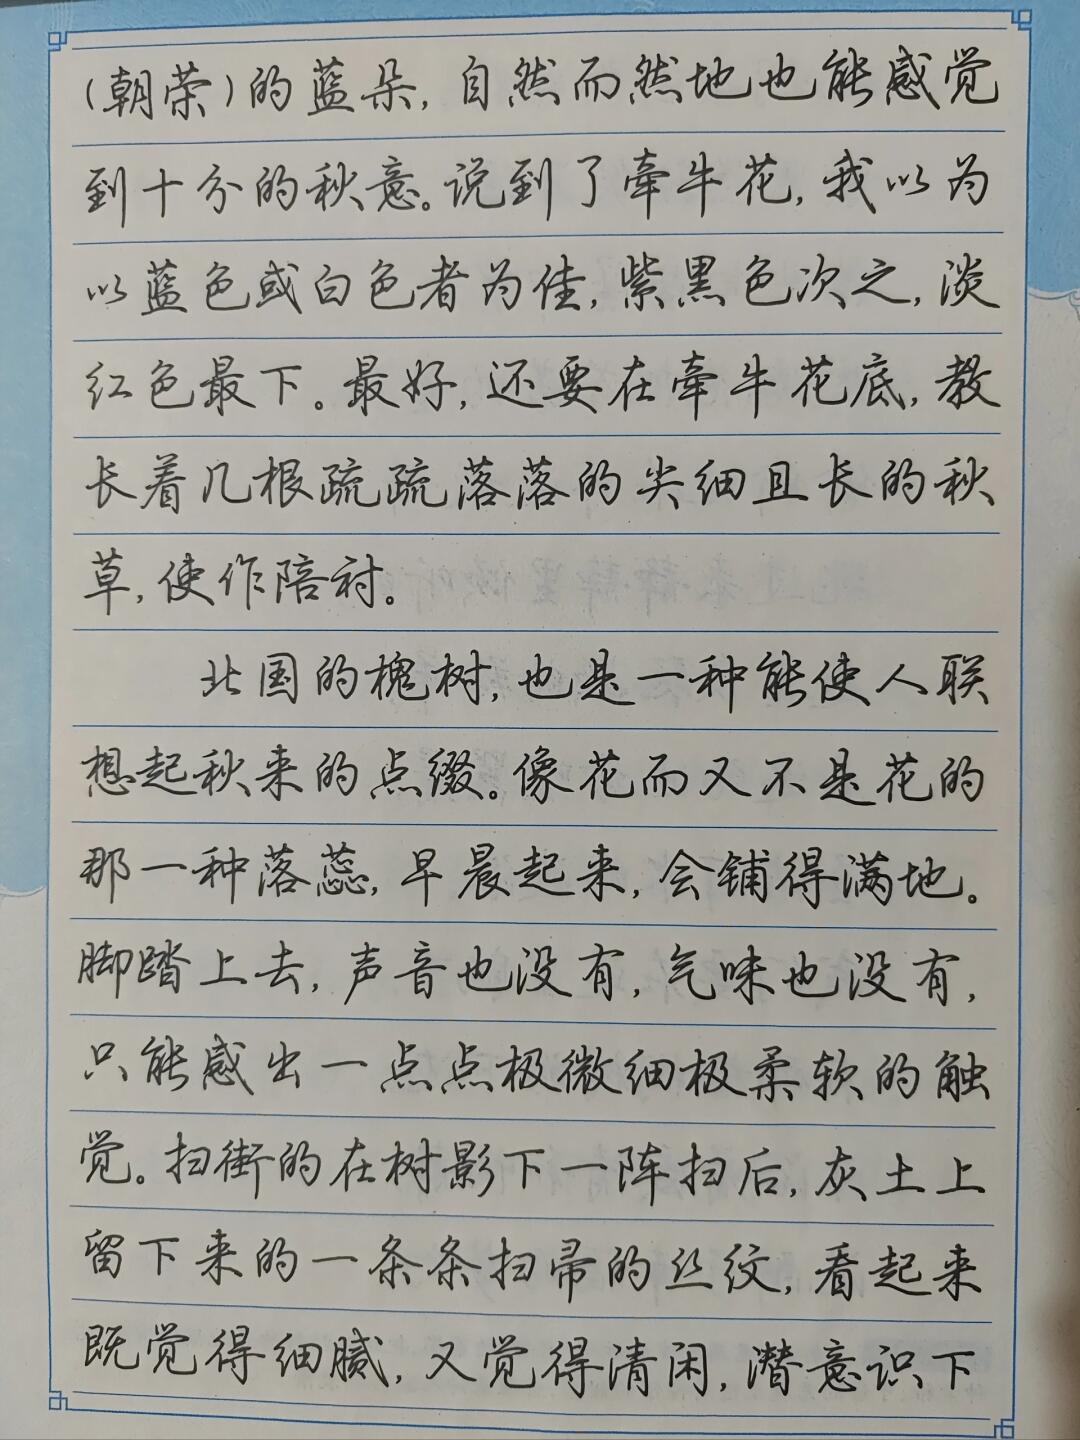 (朝荣)的蓝朵,自然而然地也能感觉
到十分的秋意。说到了牵牛花,我以为
以蓝色或白色者为佳,紫黑色次之,淡
红色最下。最好,还要在牵牛花底,教
长着几根疏疏落落的尖细且长的秋
草,使作陪衬。
北国的槐树,也是一种能使人联
想起秋来的点缀。像花而又不是花的
那一种落蕊,早晨起来,会铺得满地。
脚踏上去,声音也没有,气味也没有,
只能感出一点点极微细极柔软的触
觉。扫街的在树影下一阵扫后,灰土上
留下来的一条条扫帚的丝纹,看起来
既觉得细腻,又觉得清闲,潜意识下